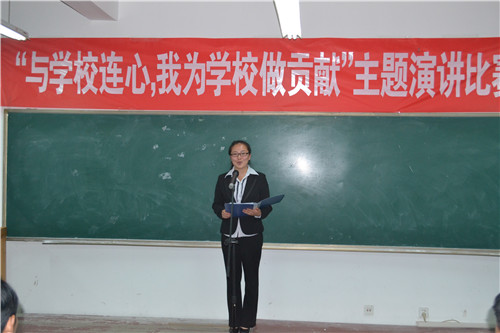 “与学校连心,我为学校做贡献”主题演讲比赛